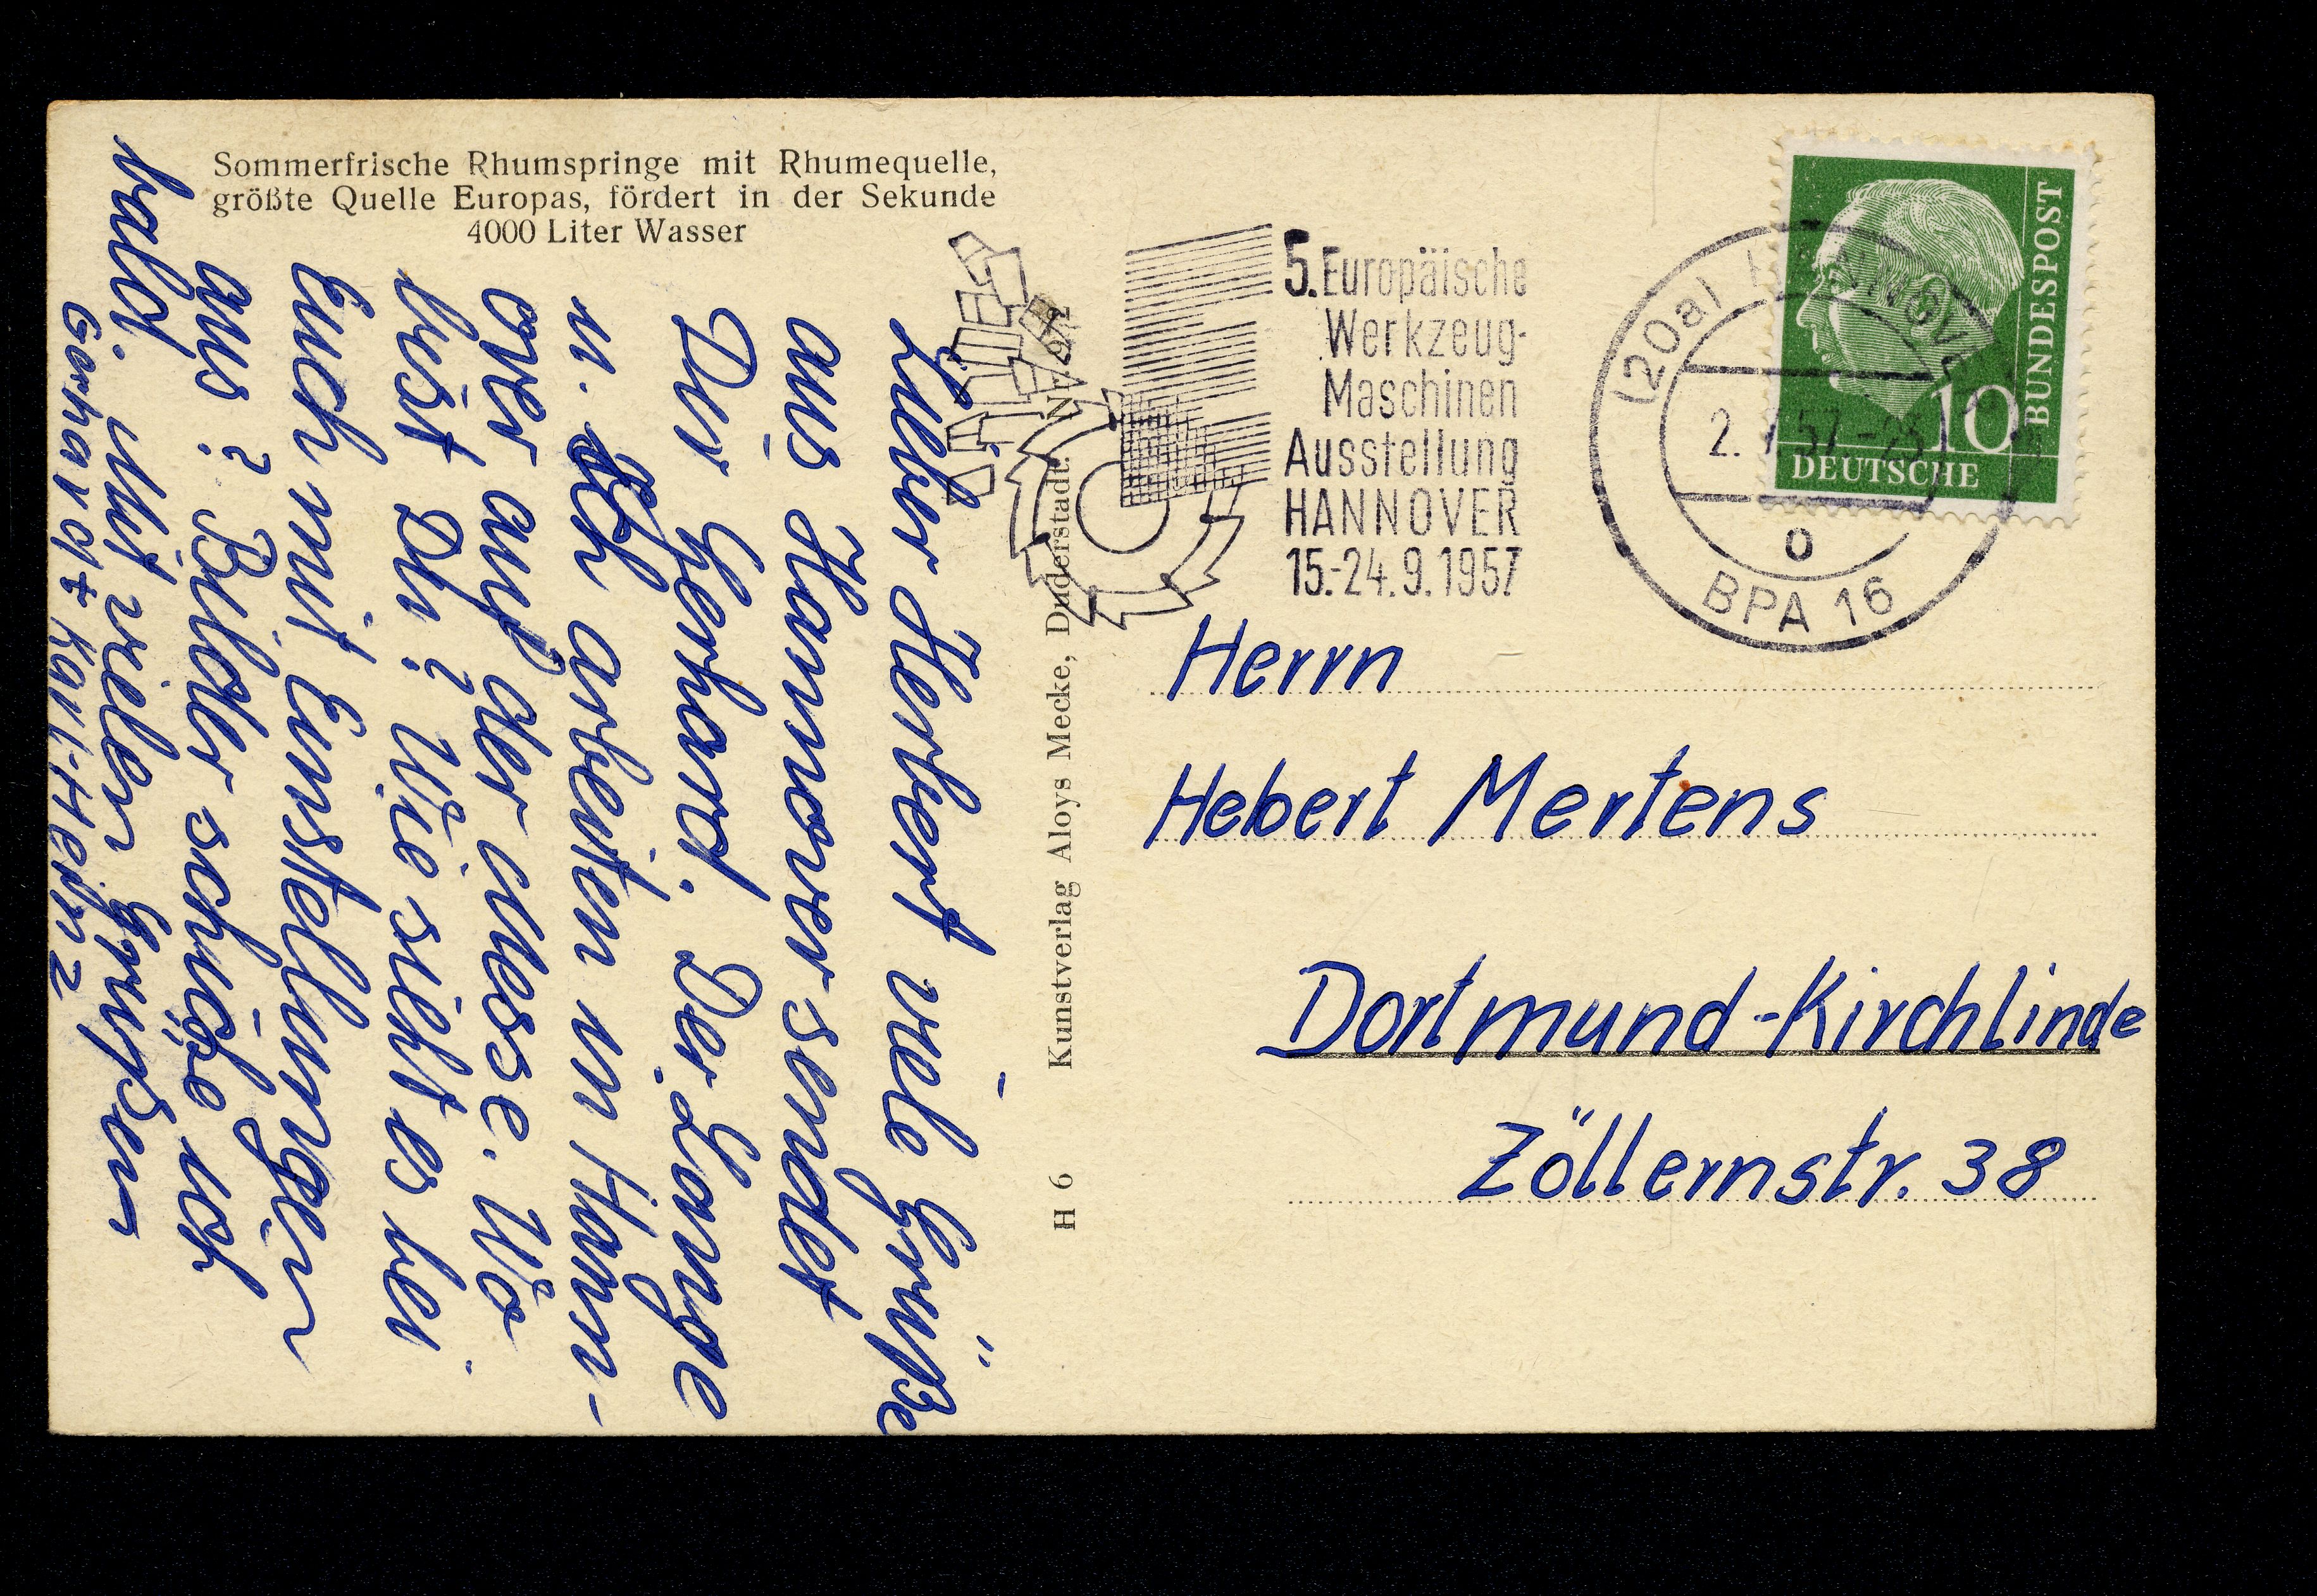 Sommerfrische Rhumspringe mit Rhumequelle,
größte Quelle Europas, fördert in der Sekunde
4000 Liter Wasser
Lieber Herbert viele Grüße
aus Hannover sendet
Dir Gerhard. Der Lange
u. Ich arbeiten in Hann-
over auf der Messe. Wo
bist Du? Wie sieht es bei
Euch mit Einstellungen
aus? Bilder schicke ich
bald. Mit vielen Grüßen
Gerhard + Karl-Heinz
H 6 Kunstverlag Aloys Mecke, Duderstadt.
5. Europäische
Werkzeug-
Maschinen
Ausstellung
HANNOVER
15.-24.9.1957
(20a) HANNOVER
2. 57.-
o
BPA 16
10
DEUTSCHE
BUNDESPOST
Herrn
Hebert Mertens
Dortmund-Kirchlinde
Zöllernstr. 38